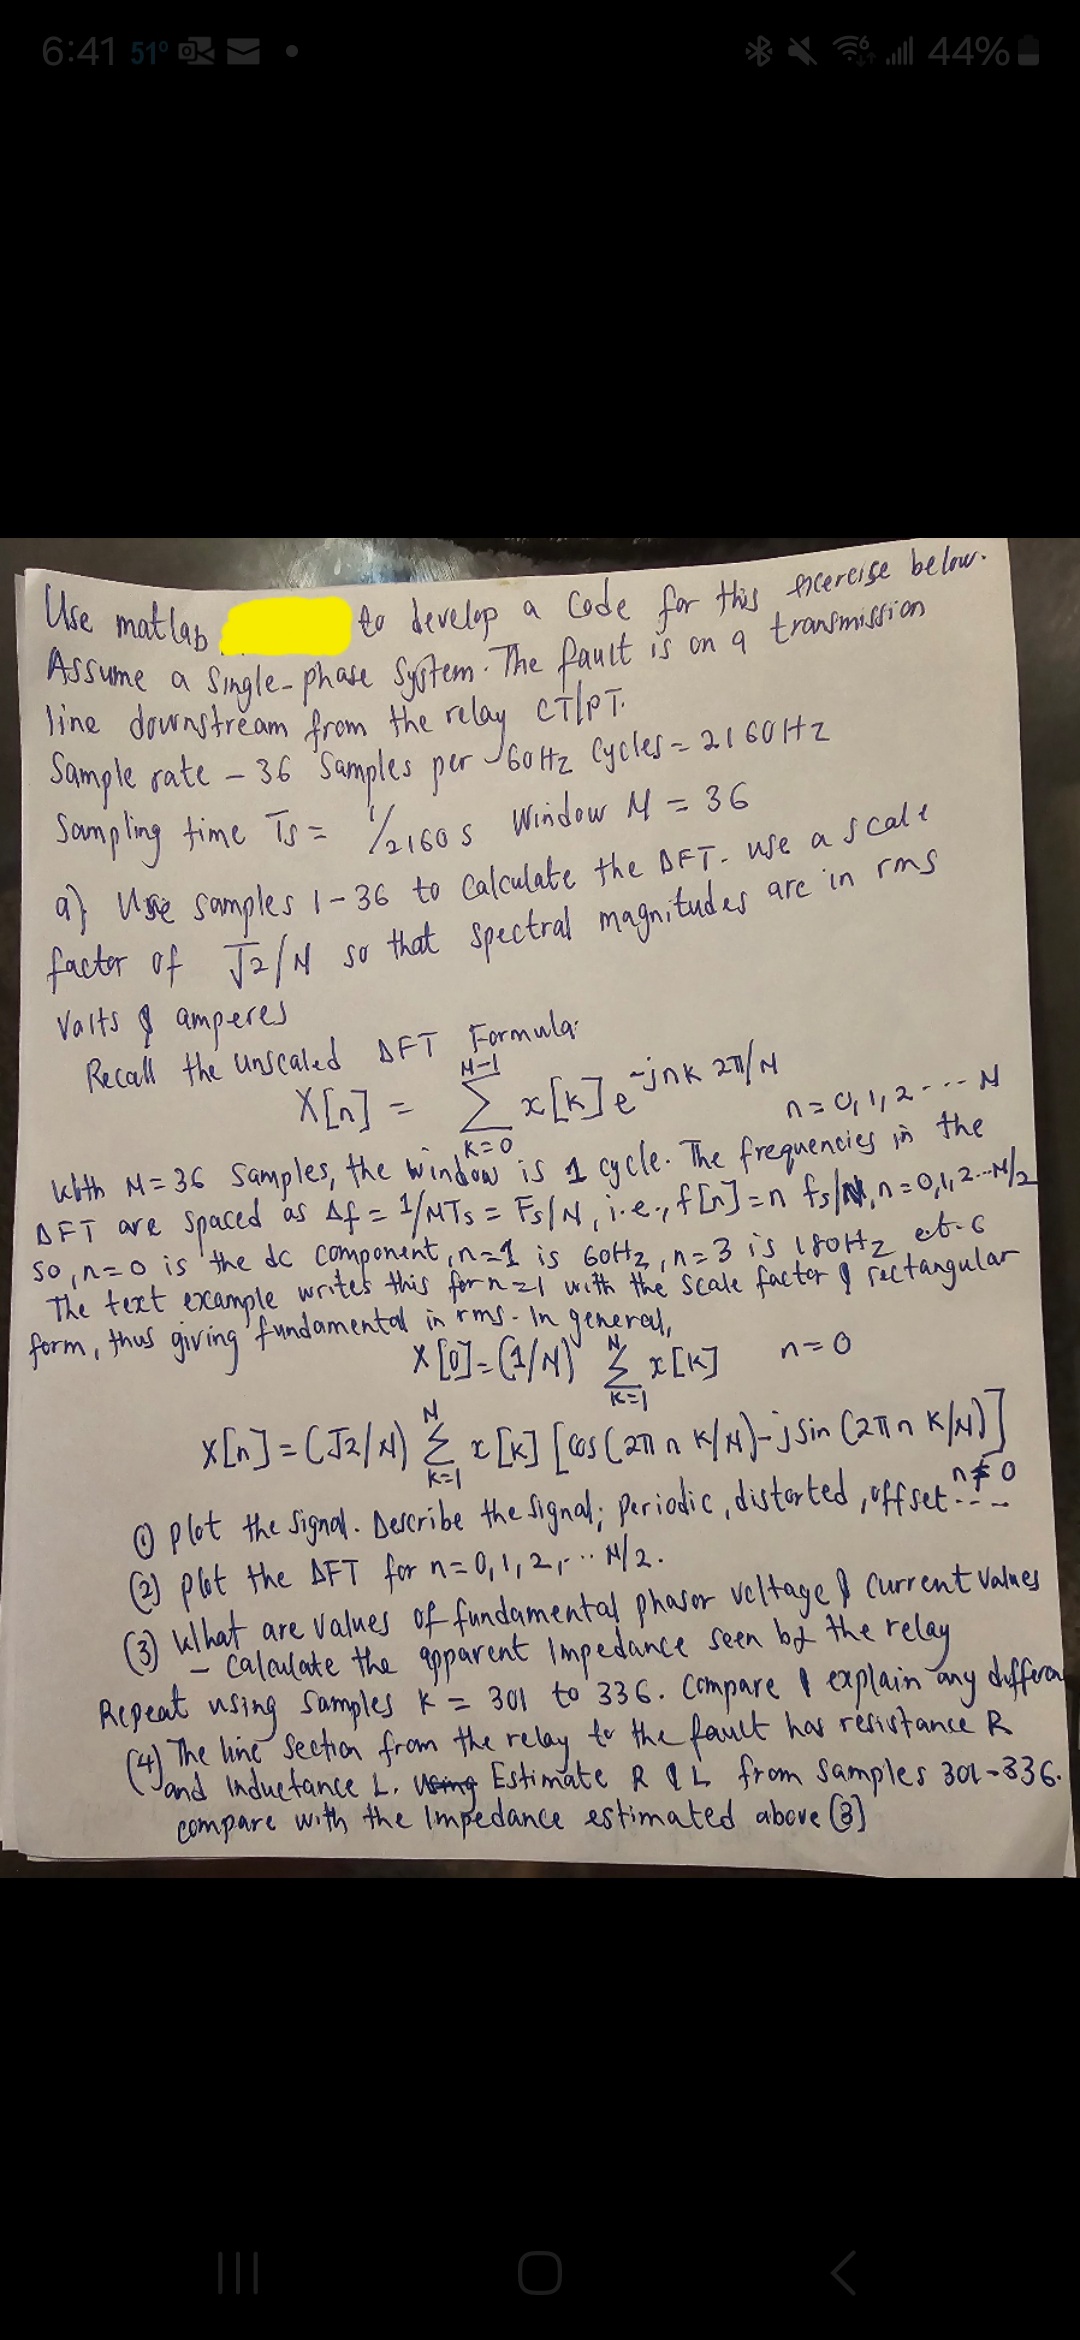 6:41 51°
44%
Use matlab to develop a code for this excercise below.
Assume a Single-phase System. The fault is on a transmission
line downstream from the relay CT/PT.
Sample rate - 36 Samples per 60Hz Cycles = 2160Hz
Sampling time Ts = 1/2160 s Window N = 36
a) Use samples 1-36 to calculate the DFT. use a scale
factor of √2/N so that spectral magnitudes are in rms
Volts & amperes
Recall the unscaled DFT Formula:
X[n] = N-1 Σ k=0 x[k]e^-jnk 2π/N n=0,1,2....N
With N=36 Samples, the window is 1 cycle. The frequencies in the
DFT are spaced as Δf = 1/NTs = Fs/N, i.e., f[n]=n fs/N, n=0,1,2...N/2
so, n=0 is the dc component, n=1 is 60Hz, n=3 is 180Hz et.c
The text example writes this for n=1 with the scale factor & rectangular
form, thus giving fundamental in rms. In general,
X[0]=(1/N) N Σ k=1 x[k] n=0
X[n]=(√2/N) N Σ k=1 x[k] [cos(2πn k/N)-jsin(2πn k/N)] n≠0
① plot the signal. Describe the signal; periodic, distorted, offset....
(2) plot the DFT for n=0,1,2,... N/2.
(3) What are values of fundamental phasor voltage & current values
- Calculate the apparent Impedance seen by the relay
Repeat using samples k = 301 to 336. Compare & explain any differen
(4) The line section from the relay to the fault has resistance R
and Inductance L. Using Estimate R & L from samples 301-336.
compare with the Impedance estimated above (3)